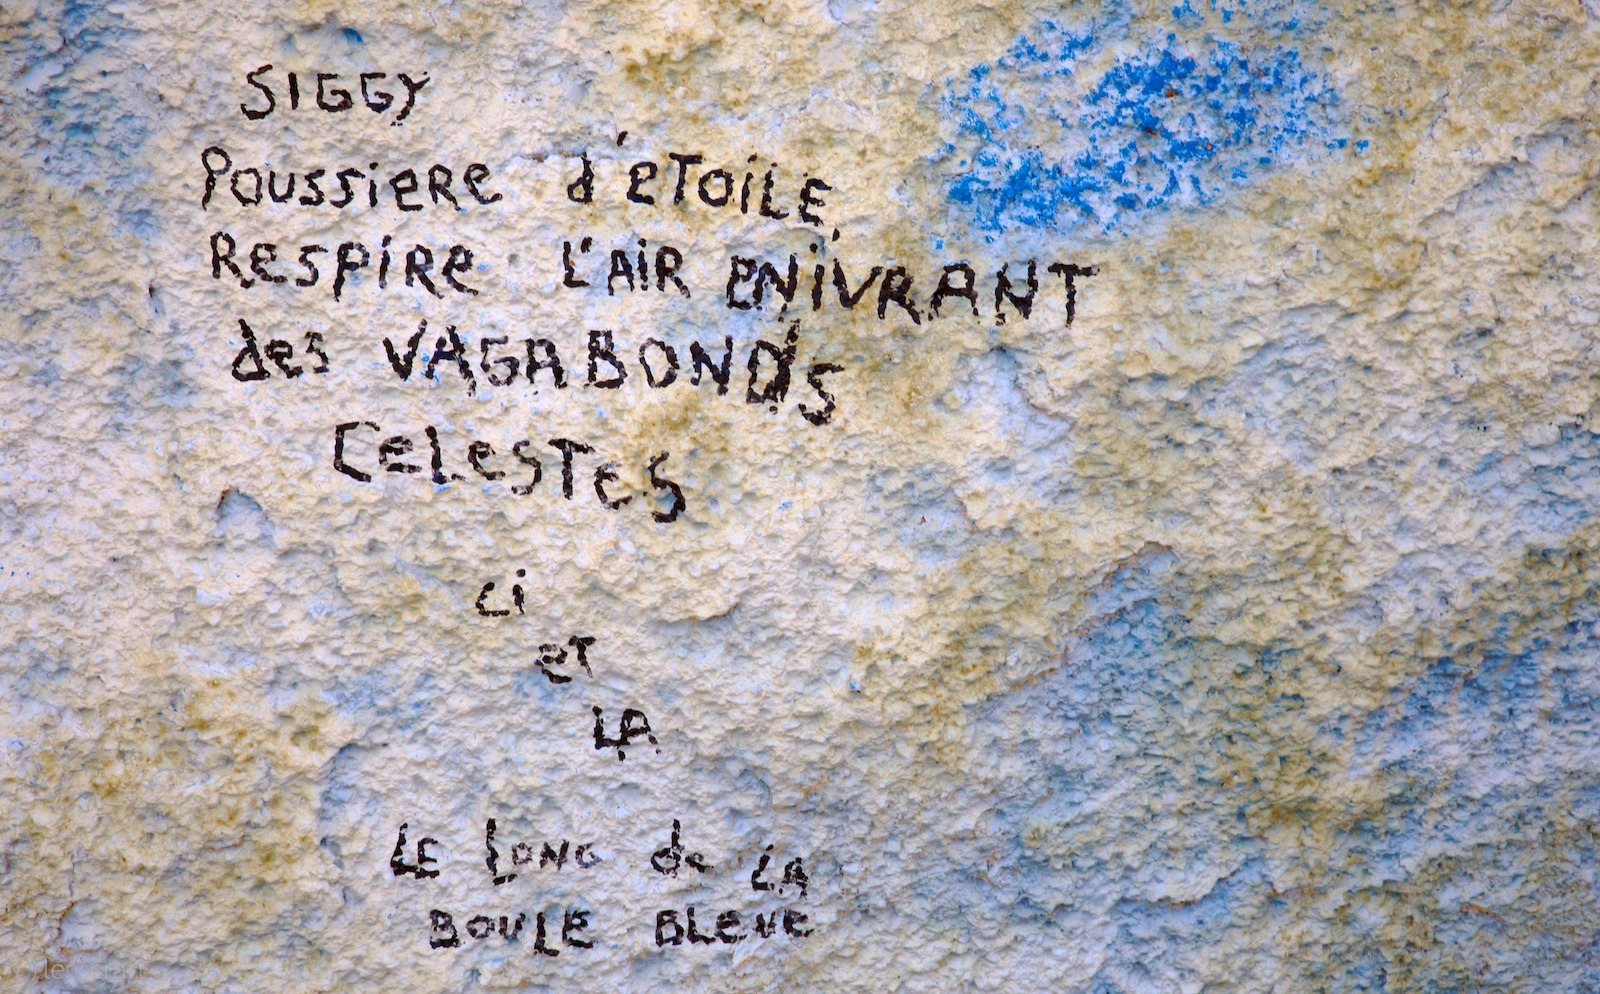 SIGGY
POUSSIERE d'éTOILE
RESPIRE L'AIR ENIVRANT
des VAGABONdS
CELESTES
Ci
eT
LA
LE LONG de LA
BOULE BLEUE